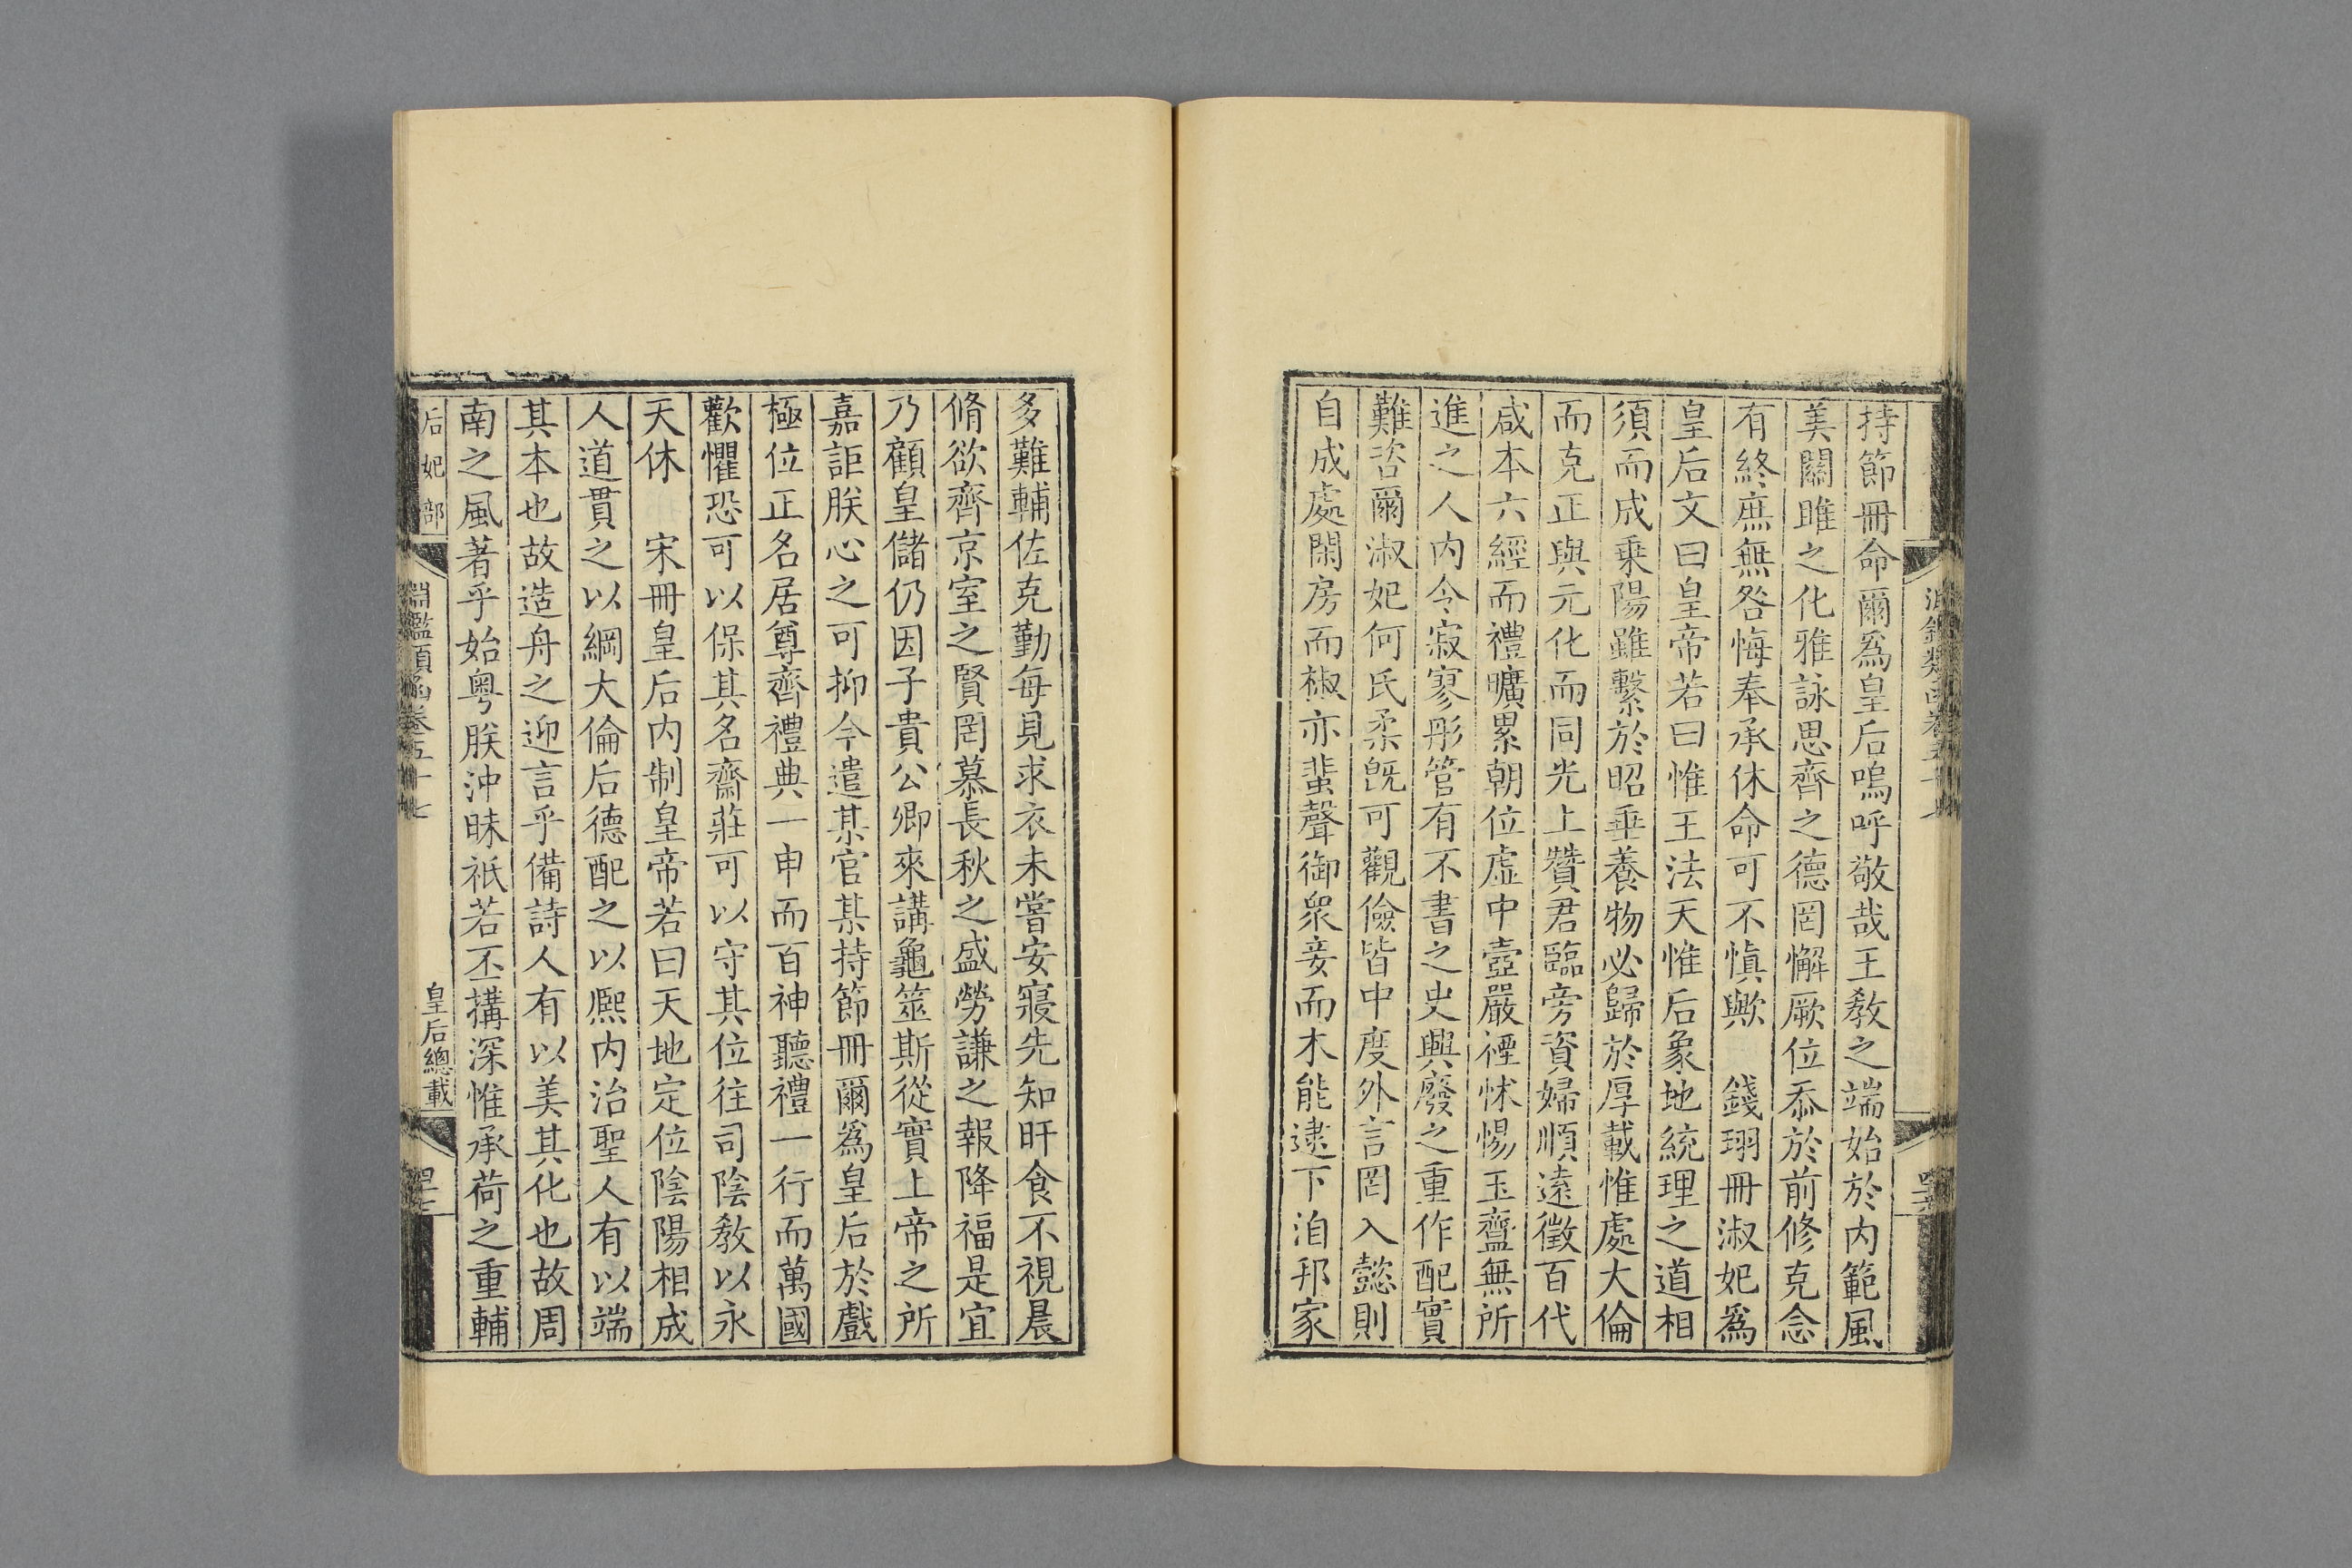 持節冊命爾爲皇后嗚呼敬哉王教之端始於内範風
美關雎之化雅詠思齊之德罔懈厥位忝於前修克念
有終庶無咎悔奉承休命可不愼歟　錢珝冊淑妃爲
皇后文曰皇帝若曰惟王法天惟后象地統理之道相
須而成乗陽雖繫於昭垂養物必歸於厚載惟處大倫
而克正與元化而同光上贊君臨旁資婦順遠徵百代
咸本六經而禮曠累朝位虛中壼嚴禋怵惕玉齍無所
進之人内令寂寥彤管有不書之史興廢之重作配實
難咨爾淑妃何氏柔旣可觀儉皆中度外言罔入懿則
自成處閑房而椒亦蜚聲御衆妾而木能逮下洎邦家
多難輔佐克勤每見求衣未嘗安寢先知旰食不視晨
脩欲齊京室之賢罔慕長秋之盛勞謙之報降福是宜
乃顧皇儲仍因子貴公卿來講龜筮斯從實上帝之所
嘉詎朕心之可抑今遣某官某持節冊爾爲皇后於戲
極位正名居尊齊禮典一申而百神聽禮一行而萬國
歡懼恐可以保其名齋莊可以守其位往司陰教以永
天休　宋冊皇后内制皇帝若曰天地定位陰陽相成
人道貫之以綱大倫后德配之以熈内治聖人有以端
其本也故造舟之迎言乎備詩人有以美其化也故周
南之風著乎始粤朕沖昧祗若丕搆深惟承荷之重輔
后妃部
淵鑑類函卷五十七
皇后總載